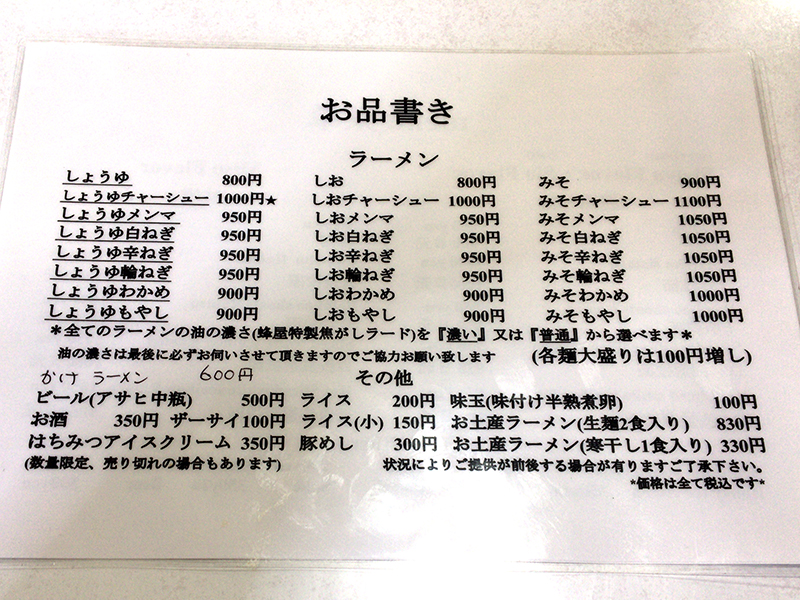 お品書き
ラーメン
しょうゆ 800円 しお 800円 みそ 900円
しょうゆチャーシュー 1000円★ しおチャーシュー 1000円 みそチャーシュー 1100円
しょうゆメンマ 950円 しおメンマ 950円 みそメンマ 1050円
しょうゆ白ねぎ 950円 しお白ねぎ 950円 みそ白ねぎ 1050円
しょうゆ辛ねぎ 950円 しお辛ねぎ 950円 みそ辛ねぎ 1050円
しょうゆ輪ねぎ 950円 しお輪ねぎ 950円 みそ輪ねぎ 1050円
しょうゆわかめ 900円 しおわかめ 900円 みそわかめ 1000円
しょうゆもやし 900円 しおもやし 900円 みそもやし 1000円
＊全てのラーメンの油の濃さ(蜂屋特製焦がしラード)を『濃い』又は『普通』から選べます＊
油の濃さは最後に必ずお伺いさせて頂きますのでご協力お願い致します (各麺大盛りは100円増し)
かけ ラーメン 600円 その他
ビール(アサヒ中瓶) 500円 ライス 200円 味玉(味付け半熟煮卵) 100円
お酒 350円 ザーサイ100円 ライス(小) 150円 お土産ラーメン(生麺2食入り) 830円
はちみつアイスクリーム 350円 豚めし 300円 お土産ラーメン(寒干し1食入り) 330円
(数量限定、売り切れの場合もあります) 状況によりご提供が前後する場合が有りますご了承下さい。
*価格は全て税込です*